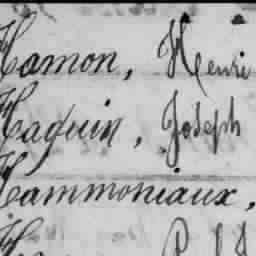 Hamon, Henri
Haquin, Joseph
Hammoniaux,